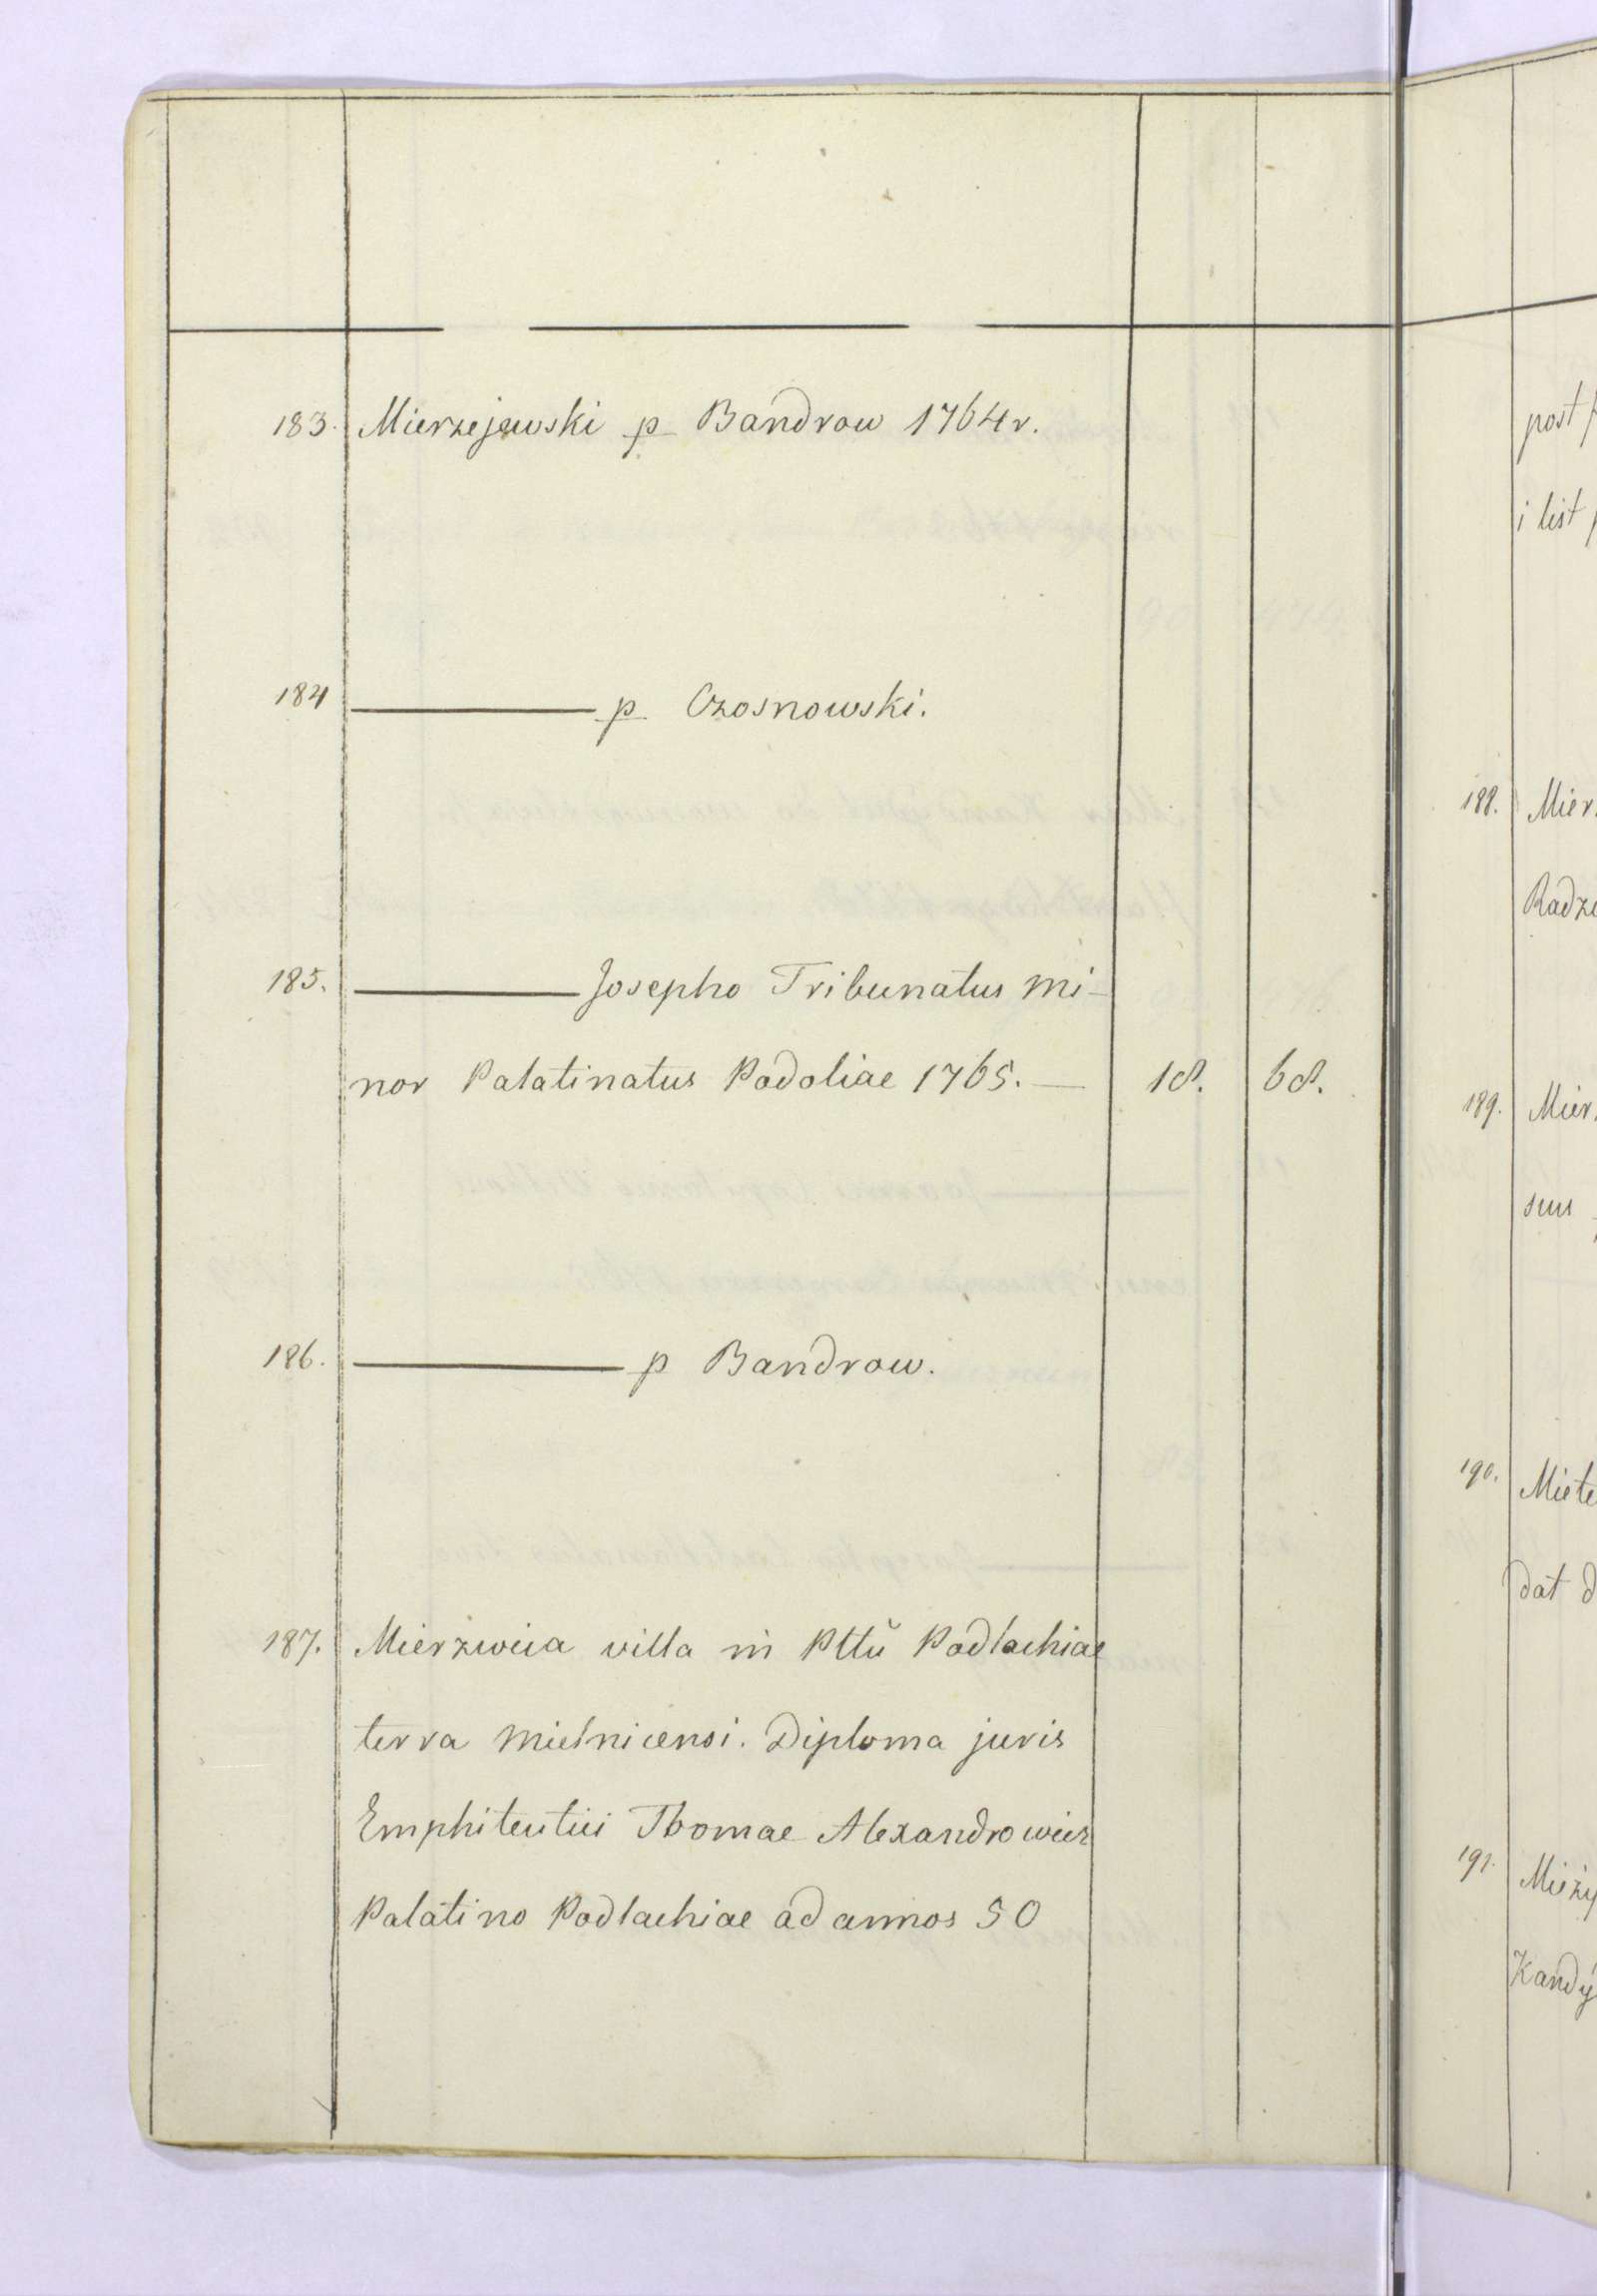 183. Mierzejewski p Bandrow 1764 r.
184 ——— p Czosnowski.
185. ——— Josepho Tribunatus mi-
nor Palatinatus Podoliae 1765. — 18. 68.
186. ——— p Bandrow.
187. Mierzwica villa in Pttũ Podlachiae
terra Mielnicensi. Diploma juris
Emphiteutici Thomae Alexandrowicz
Palatino Podlachiae ad annos 50
post
i list
188. Mier
Radze
189. Mier
suu
190. Miete
dat d
191. Mieży
Kandy